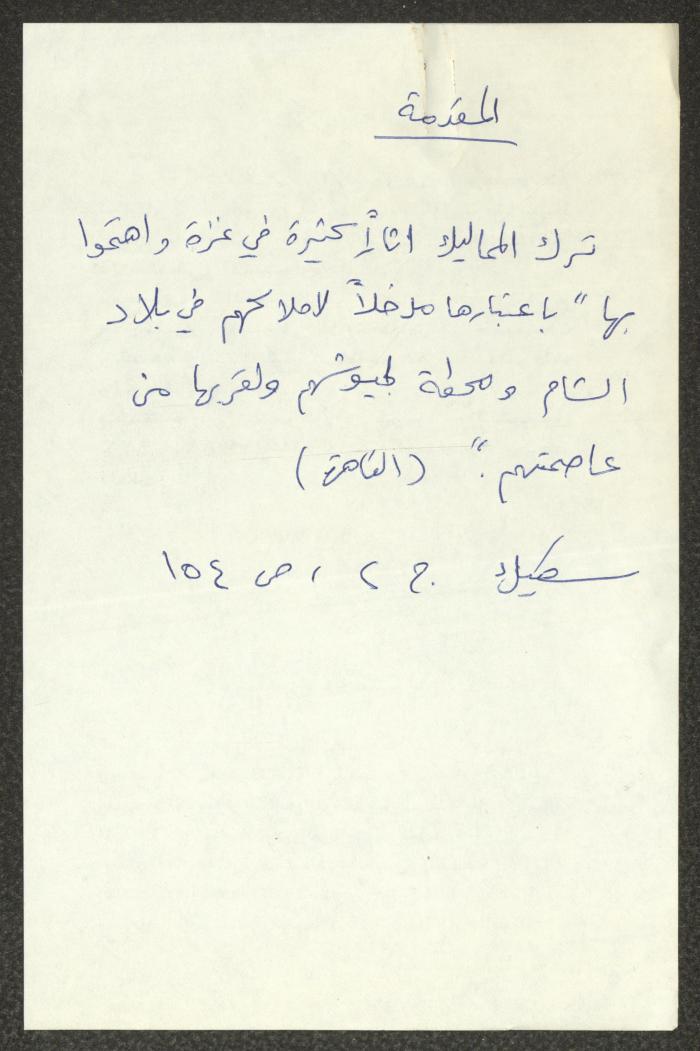 المقدمة
ترك المماليك اثاراً كثيرة في غزة واهتموا
بها " باعتبارها مدخلاً لاملاكهم في بلاد
الشام ومحطة لجيوشهم ولقربها من
عاصمتهم . " ( القاهرة )
سكيك ج ٢ ، ص ١٥٤